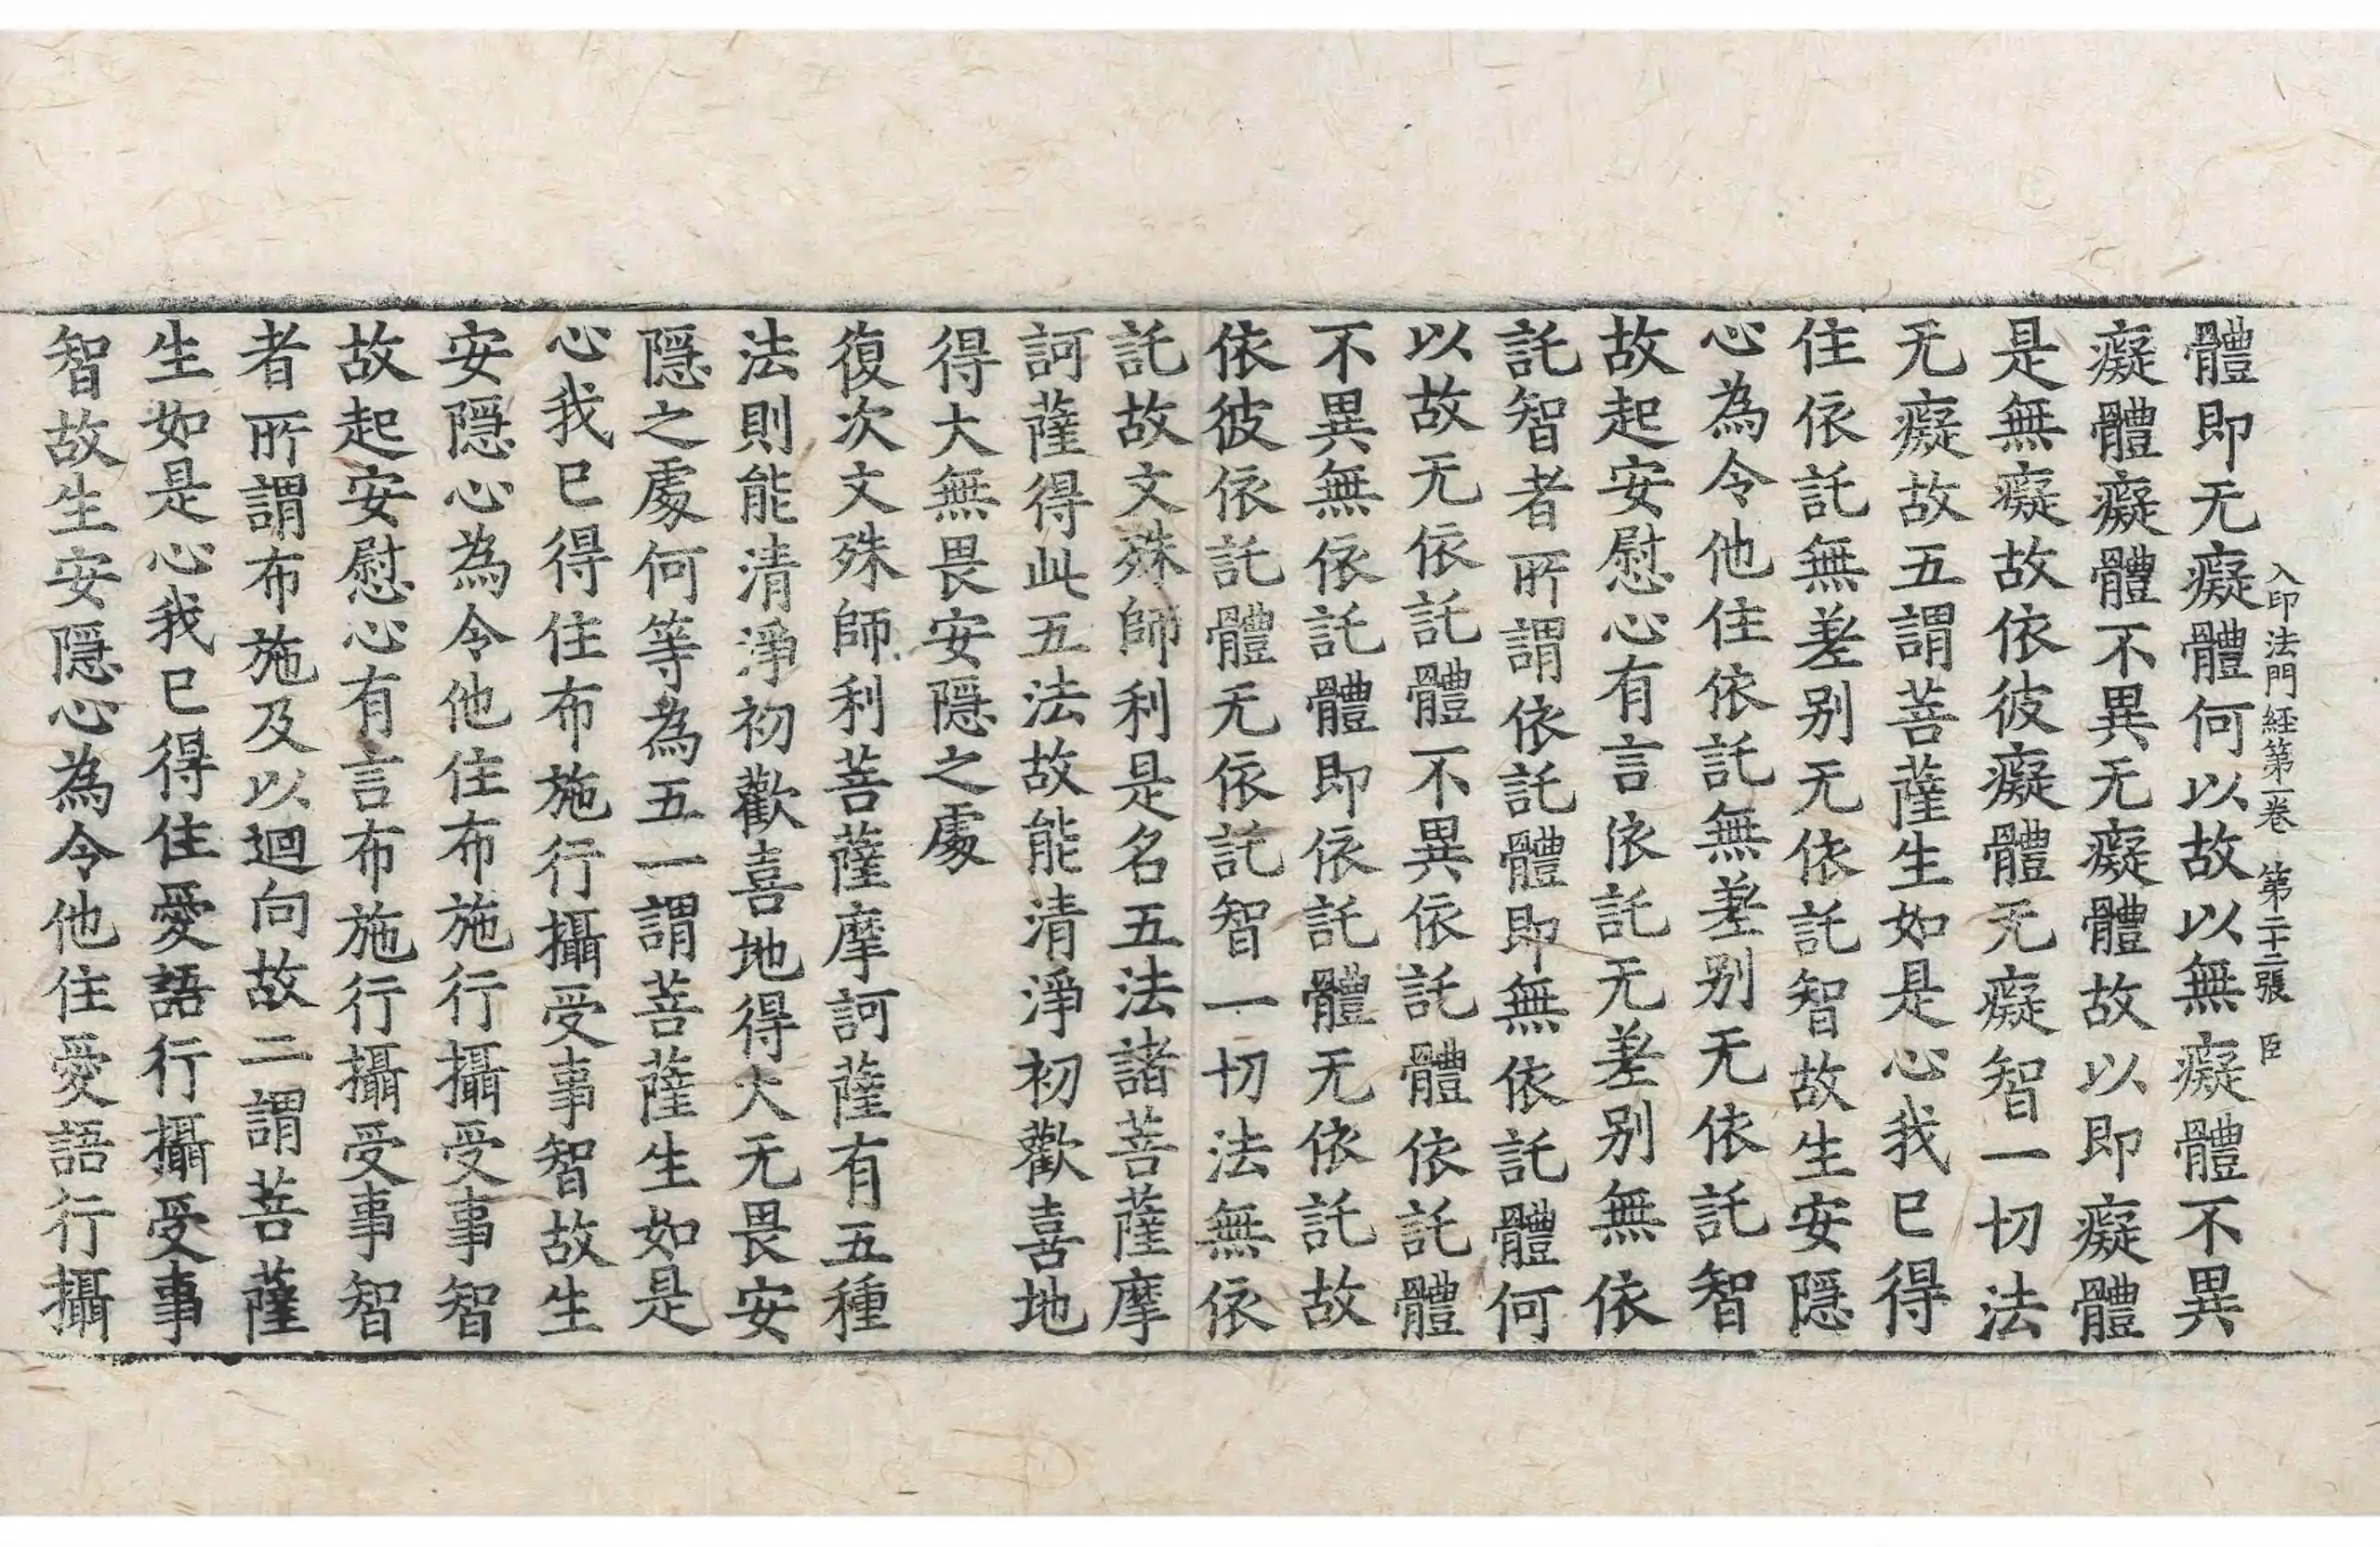 入印法門経第一卷　第二十二張　臣
體即无癡體何以故以無癡體不異
癡體癡體不異无癡體故以即癡體
是無癡故依彼癡體无癡智一切法
无癡故五謂菩薩生如是心我已得
住依託無差别无依託智故生安隱
心為令他住依託無差别无依託智
故起安慰心有言依託无差别無依
託智者所謂依託體即無依託體何
以故无依託體不異依託體依託體
不異無依託體即依託體无依託故
依彼依託體无依託智一切法無依
託故文殊師利是名五法諸菩薩摩
訶薩得此五法故能清淨初歡喜地
得大無畏安隱之處
復次文殊師利菩薩摩訶薩有五種
法則能清淨初歡喜地得大无畏安
隱之處何等為五一謂菩薩生如是
心我已得住布施行攝受事智故生
安隱心為令他住布施行攝受事智
故起安慰心有言布施行攝受事智
者所謂布施及以迴向故二謂菩薩
生如是心我已得住愛語行攝受事
智故生安隱心為令他住愛語行攝